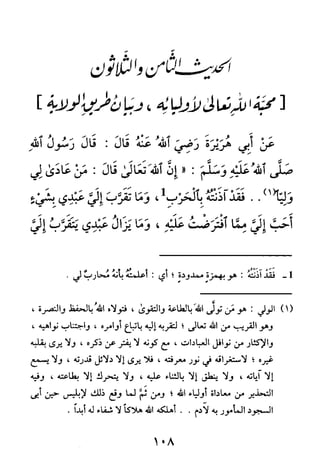 الحديث الثامن والثلاثون
[ محبة الله تعالى لأوليائه ، وبيان طريق الولاية ]
عَنْ أَبِي هُرَيْرَةَ رَضِيَ اللهُ عَنْهُ قَالَ : قَالَ رَسُولُ اللهِ
صَلَّى اللهُ عَلَيْهِ وَسَلَّمَ : « إِنَّ اللهَ تَعَالَىٰ قَالَ : مَنْ عَادَىٰ لِي
وَلِيّاً(١) .. فَقَدْ آذَنْتُهُ بِالْحَرْبِ1 ، وَمَا تَقَرَّبَ إِلَيَّ عَبْدِي بِشَيْءٍ
أَحَبَّ إِلَيَّ مِمَّا افْتَرَضْتُ عَلَيْهِ ، وَمَا يَزَالُ عَبْدِي يَتَقَرَّبُ إِلَيَّ
1ـ فَقَدْ آذَنْتُهُ : هو بهمزةٍ ممدودةٍ ؛ أي : أعلمتُهُ بأنهُ مُحاربٌ لي .
(١) الولي : هو مَن تولَّى اللهَ بالطاعة والتقوىٰ ، فتولاه اللهُ بالحفظ والنصرة ،
وهو القريب من الله تعالى ؛ لتقربه إليه باتباع أوامره ، واجتناب نواهيه ،
والإكثار من نوافل العبادات ، مع كونه لا يفتر عن ذكره ، ولا يرى بقلبه
غيره ؛ لاستغراقه في نور معرفته ، فلا يرى إلا دلائل قدرته ، ولا يسمع
إلا آياته ، ولا ينطق إلا بالثناء عليه ، ولا يتحرك إلا بطاعته ، وفيه
التحذير من معاداة أولياء الله ؛ ومن ثَمَّ لما وقع ذلك لإبليس حين أبى
السجود المأمور به لآدم . . أهلكه الله هلاكاً لا شفاء له أبداً .
١٠٨